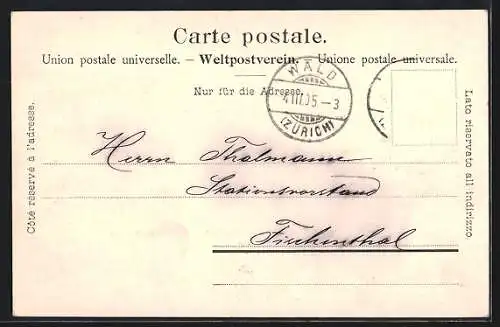 Carte postale.
Union postale universelle. — Weltpostverein. — Unione postale universale.
Nur für die Adresse.
WALD
4.III.05-3
(ZÜRICH)
Côté réservé à l'adresse.
Lato riservato all indirizzo.
Herrn Thalmann
Stationsvorstand
Fischenthal